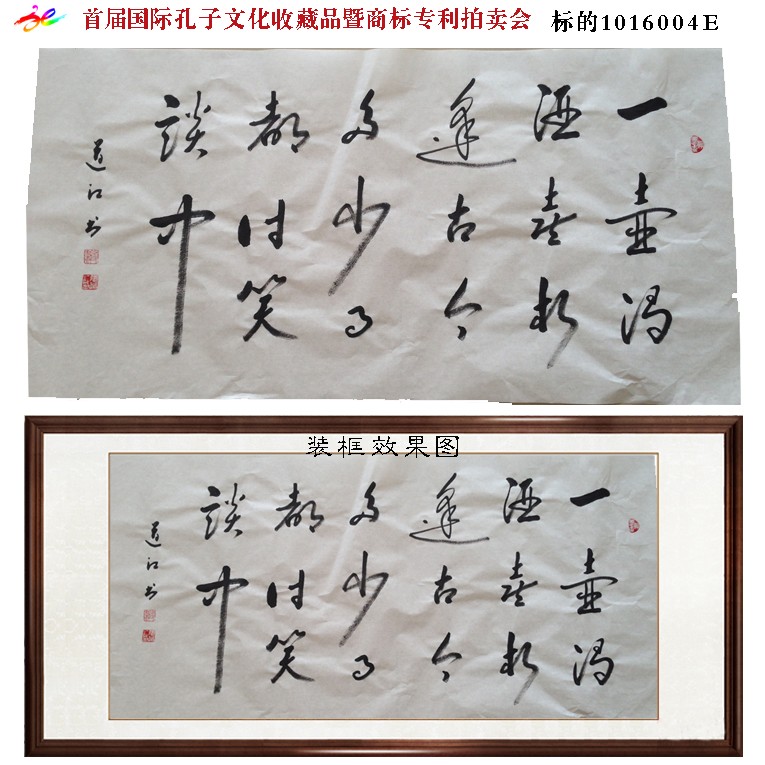 首届国际孔子文化收藏品暨商标专利拍卖会 标的1016004E
一壺濁
酒喜相
逢古今
多少事
都付笑
談中
道江书
装框效果图
一壺濁
酒喜相
逢古今
多少事
都付笑
談中
道江书